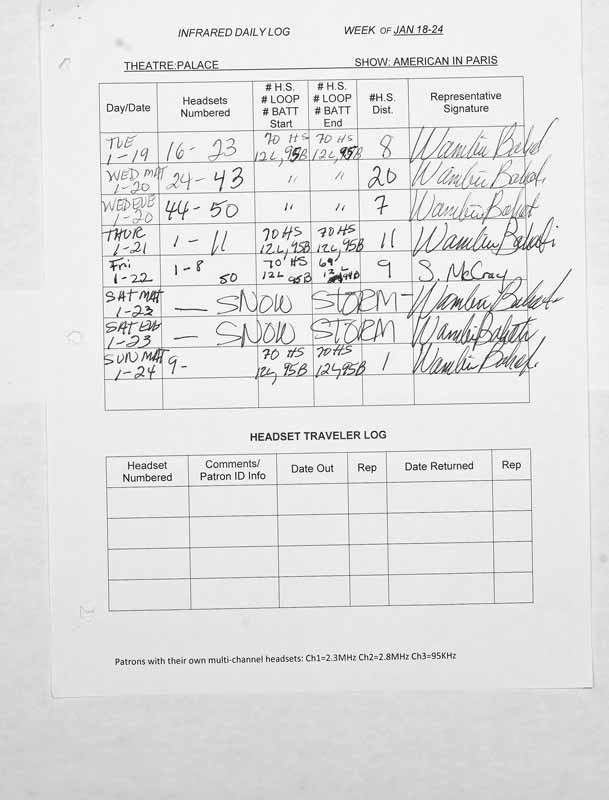 INFRARED DAILY LOG WEEK OF JAN 18-24
THEATRE:PALACE SHOW: AMERICAN IN PARIS
Day/Date Headsets Numbered # H.S. # LOOP # BATT Start # H.S. # LOOP # BATT End #H.S. Dist. Representative Signature
TUE 1-19 16-23 70 HS 12L, 95B 70 HS 12L, 95B 8
WED MAT 1-20 24-43 " " 20
WED EVE 1-20 44-50 " " 7
THUR 1-21 1-11 70 HS 12L, 95B 70 HS 12L, 95B 11
Fri 1-22 1-8 50 70 HS 12L 95B 69 12L 94B 9 S. McCray
SAT MAT 1-23 — SNOW STORM —
SAT EVE 1-23 — SNOW STORM
SUN MAT 1-24 9- 70 HS 12L, 95B 70 HS 12L, 95B 1
HEADSET TRAVELER LOG
Headset Numbered Comments/ Patron ID Info Date Out Rep Date Returned Rep
Patrons with their own multi-channel headsets: Ch1=2.3MHz Ch2=2.8MHz Ch3=95KHz